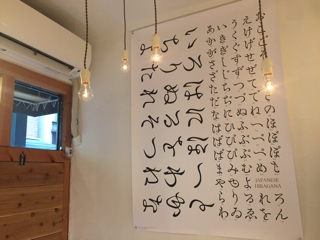 いろはにほへと
ちりぬるをわか
よたれそつねな
えけげせぜてでねへべぺめ
うくぐすずつづぬふぶぷむゆる
いきぎしじちぢにひびぴみりゐ
あかがさざただなはばぱまやらわ
JAPANESE
HIRAGANA